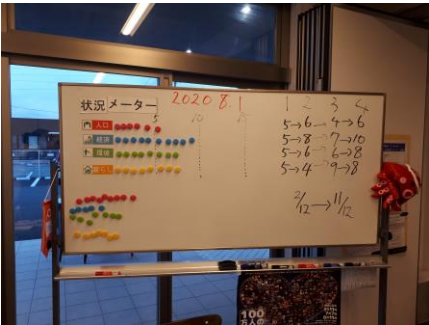 状況メーター 2020 8.1
5 10 15
人口
経済
環境
暮らし
1 2 3 4
5→6→4→6
5→8→7→10
5→6→6→8
5→4→9→8
2/12→11/12
100
万人の